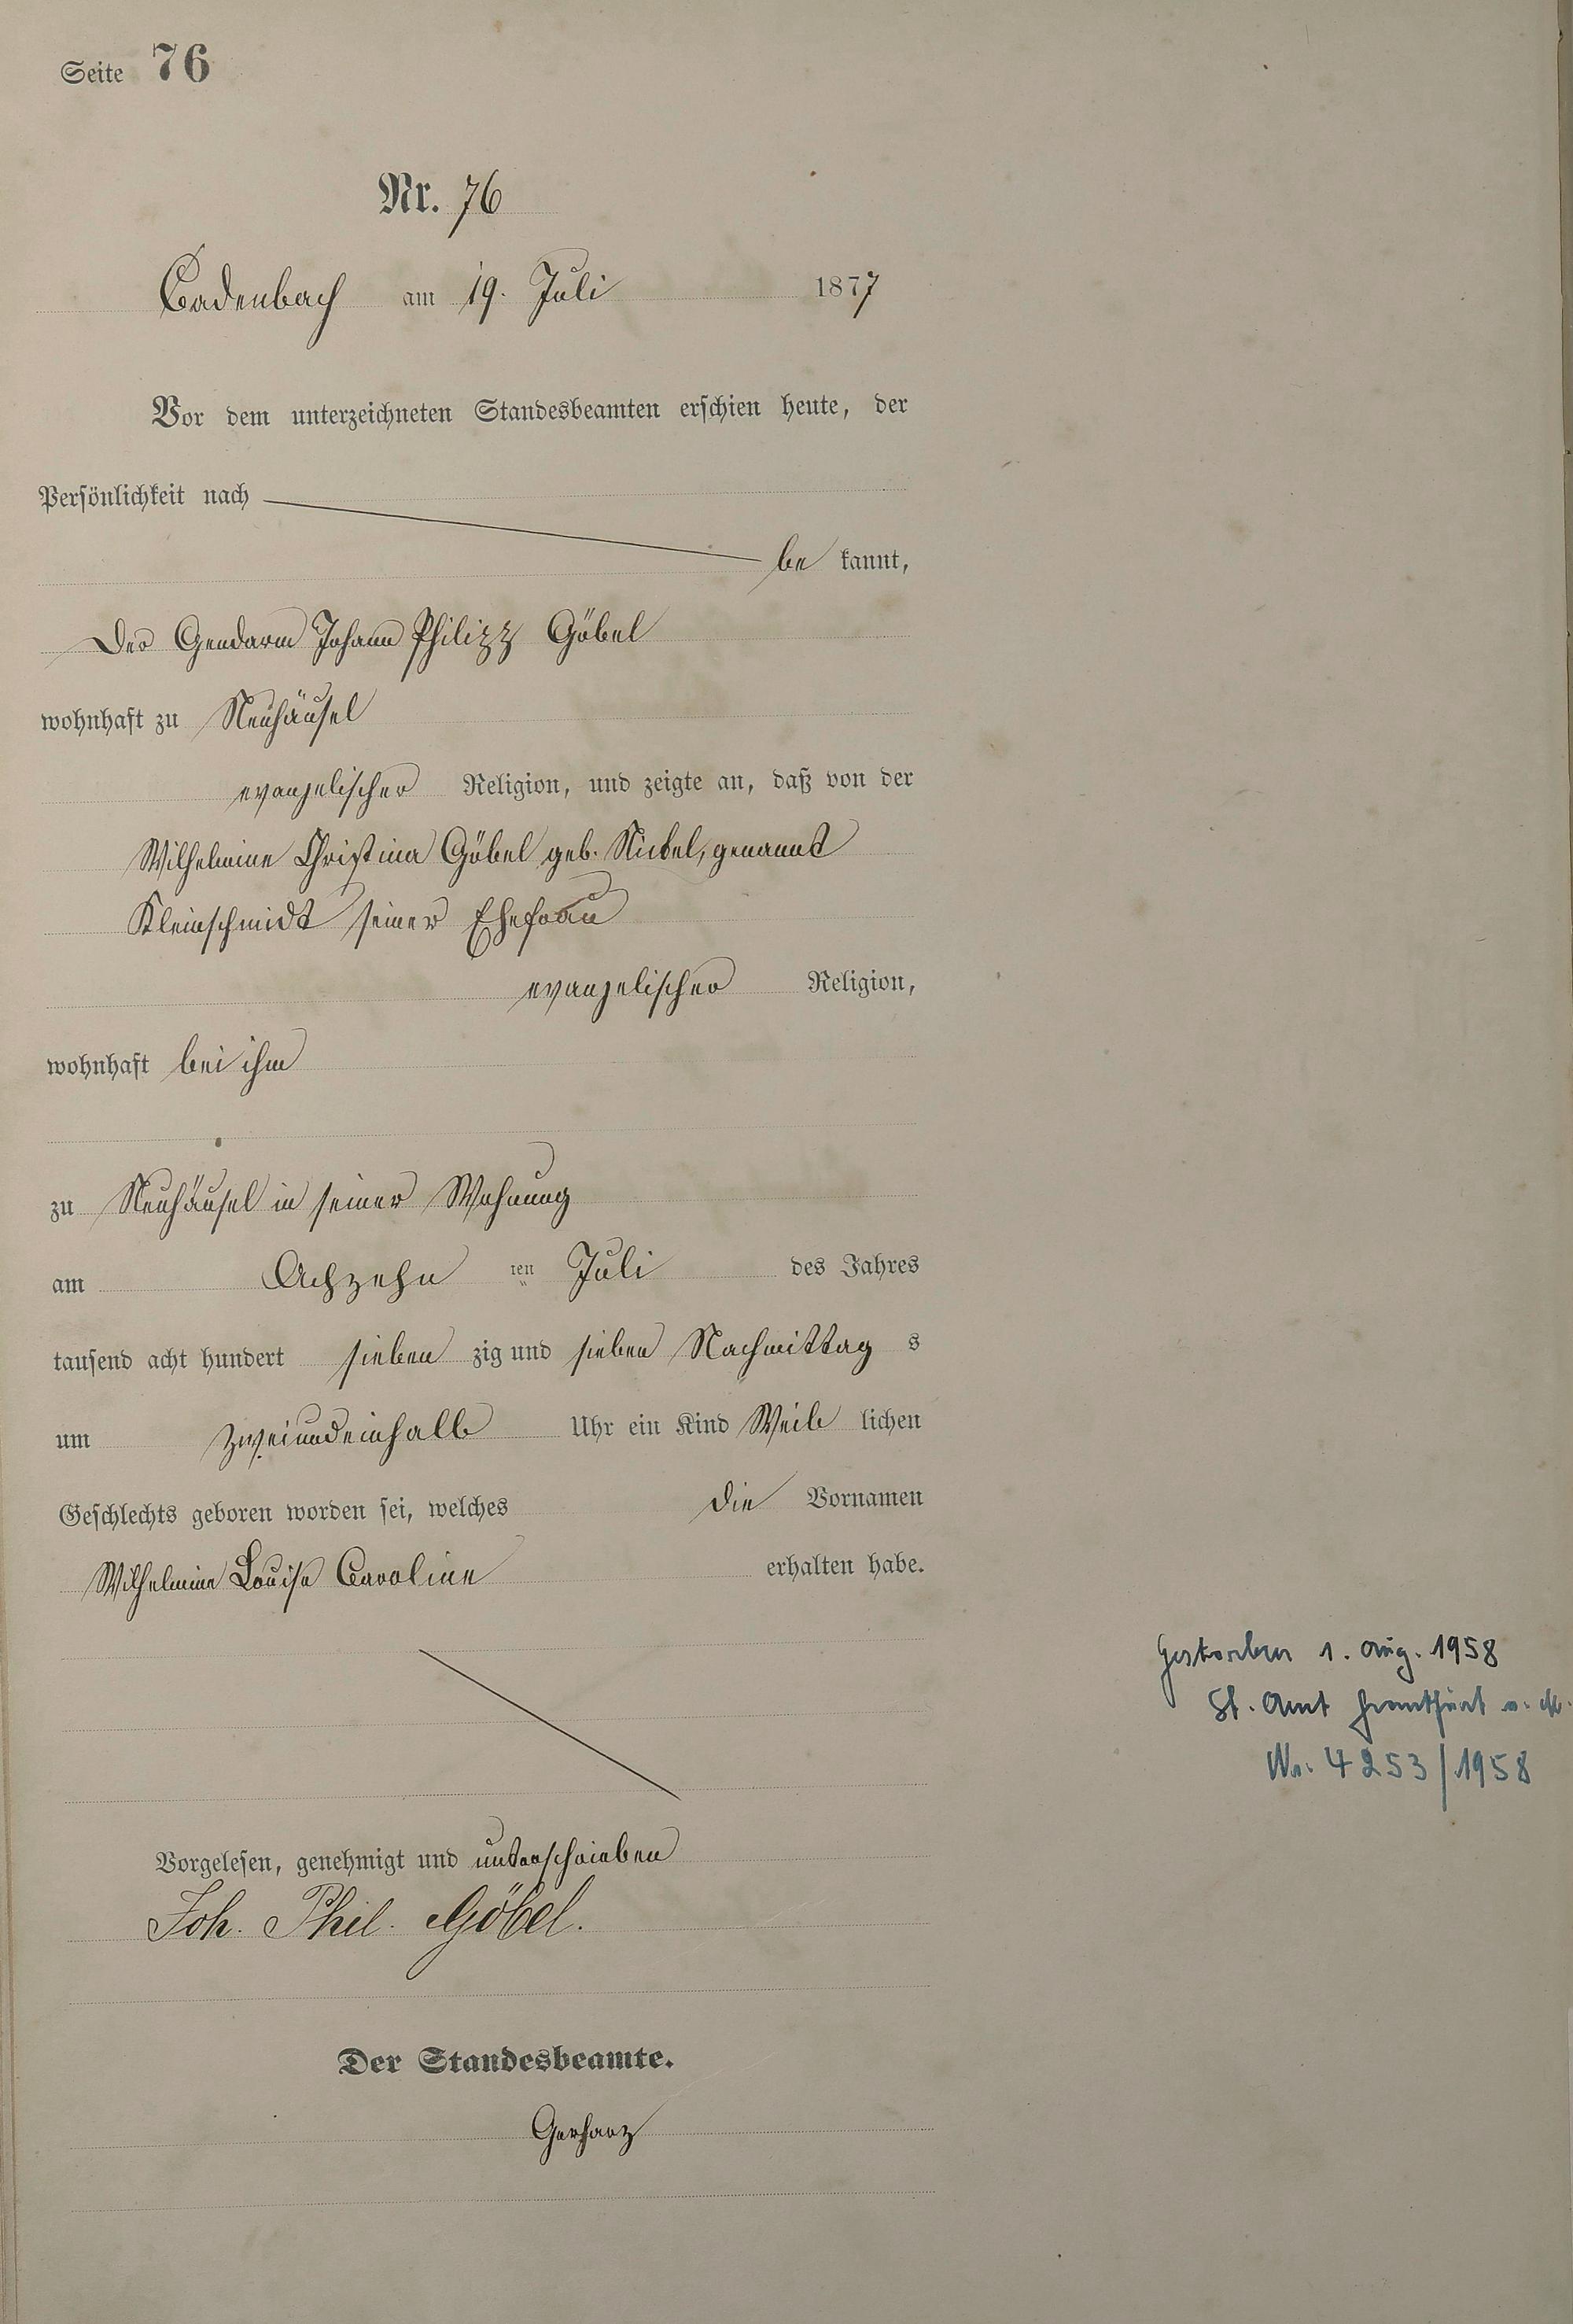 Seite 76
Nr. 76
Cadenbach am 19. Juli 1877
Vor dem unterzeichneten Standesbeamten erschien heute, der
Persönlichkeit nach
be kannt,
Der Gendarm Johann Philipp Göbel
wohnhaft zu Neuhäusel
evangelischer Religion, und zeigte an, daß von der
Wilhelmine Christina Göbel geb. Nickel, genannt
Kleinschmidt seiner Ehefrau
evangelischer Religion,
wohnhaft bei ihm
zu Neuhäusel in seiner Wohnung
am Achzehn ten Juli des Jahres
tausend acht hundert sieben zig und sieben Nachmittag s
um zweiundeinhalb Uhr ein Kind Weib lichen
Geschlechts geboren worden sei, welches die Vornamen
Wilhelmine Louise Caroline erhalten habe.
Gestorben 1. Aug. 1958
St. Amt Frankfurt a. M.
Nr. 4253/1958
Vorgelesen, genehmigt und unterschrieben
Joh. Phil. Göbel.
Der Standesbeamte.
Gerharz